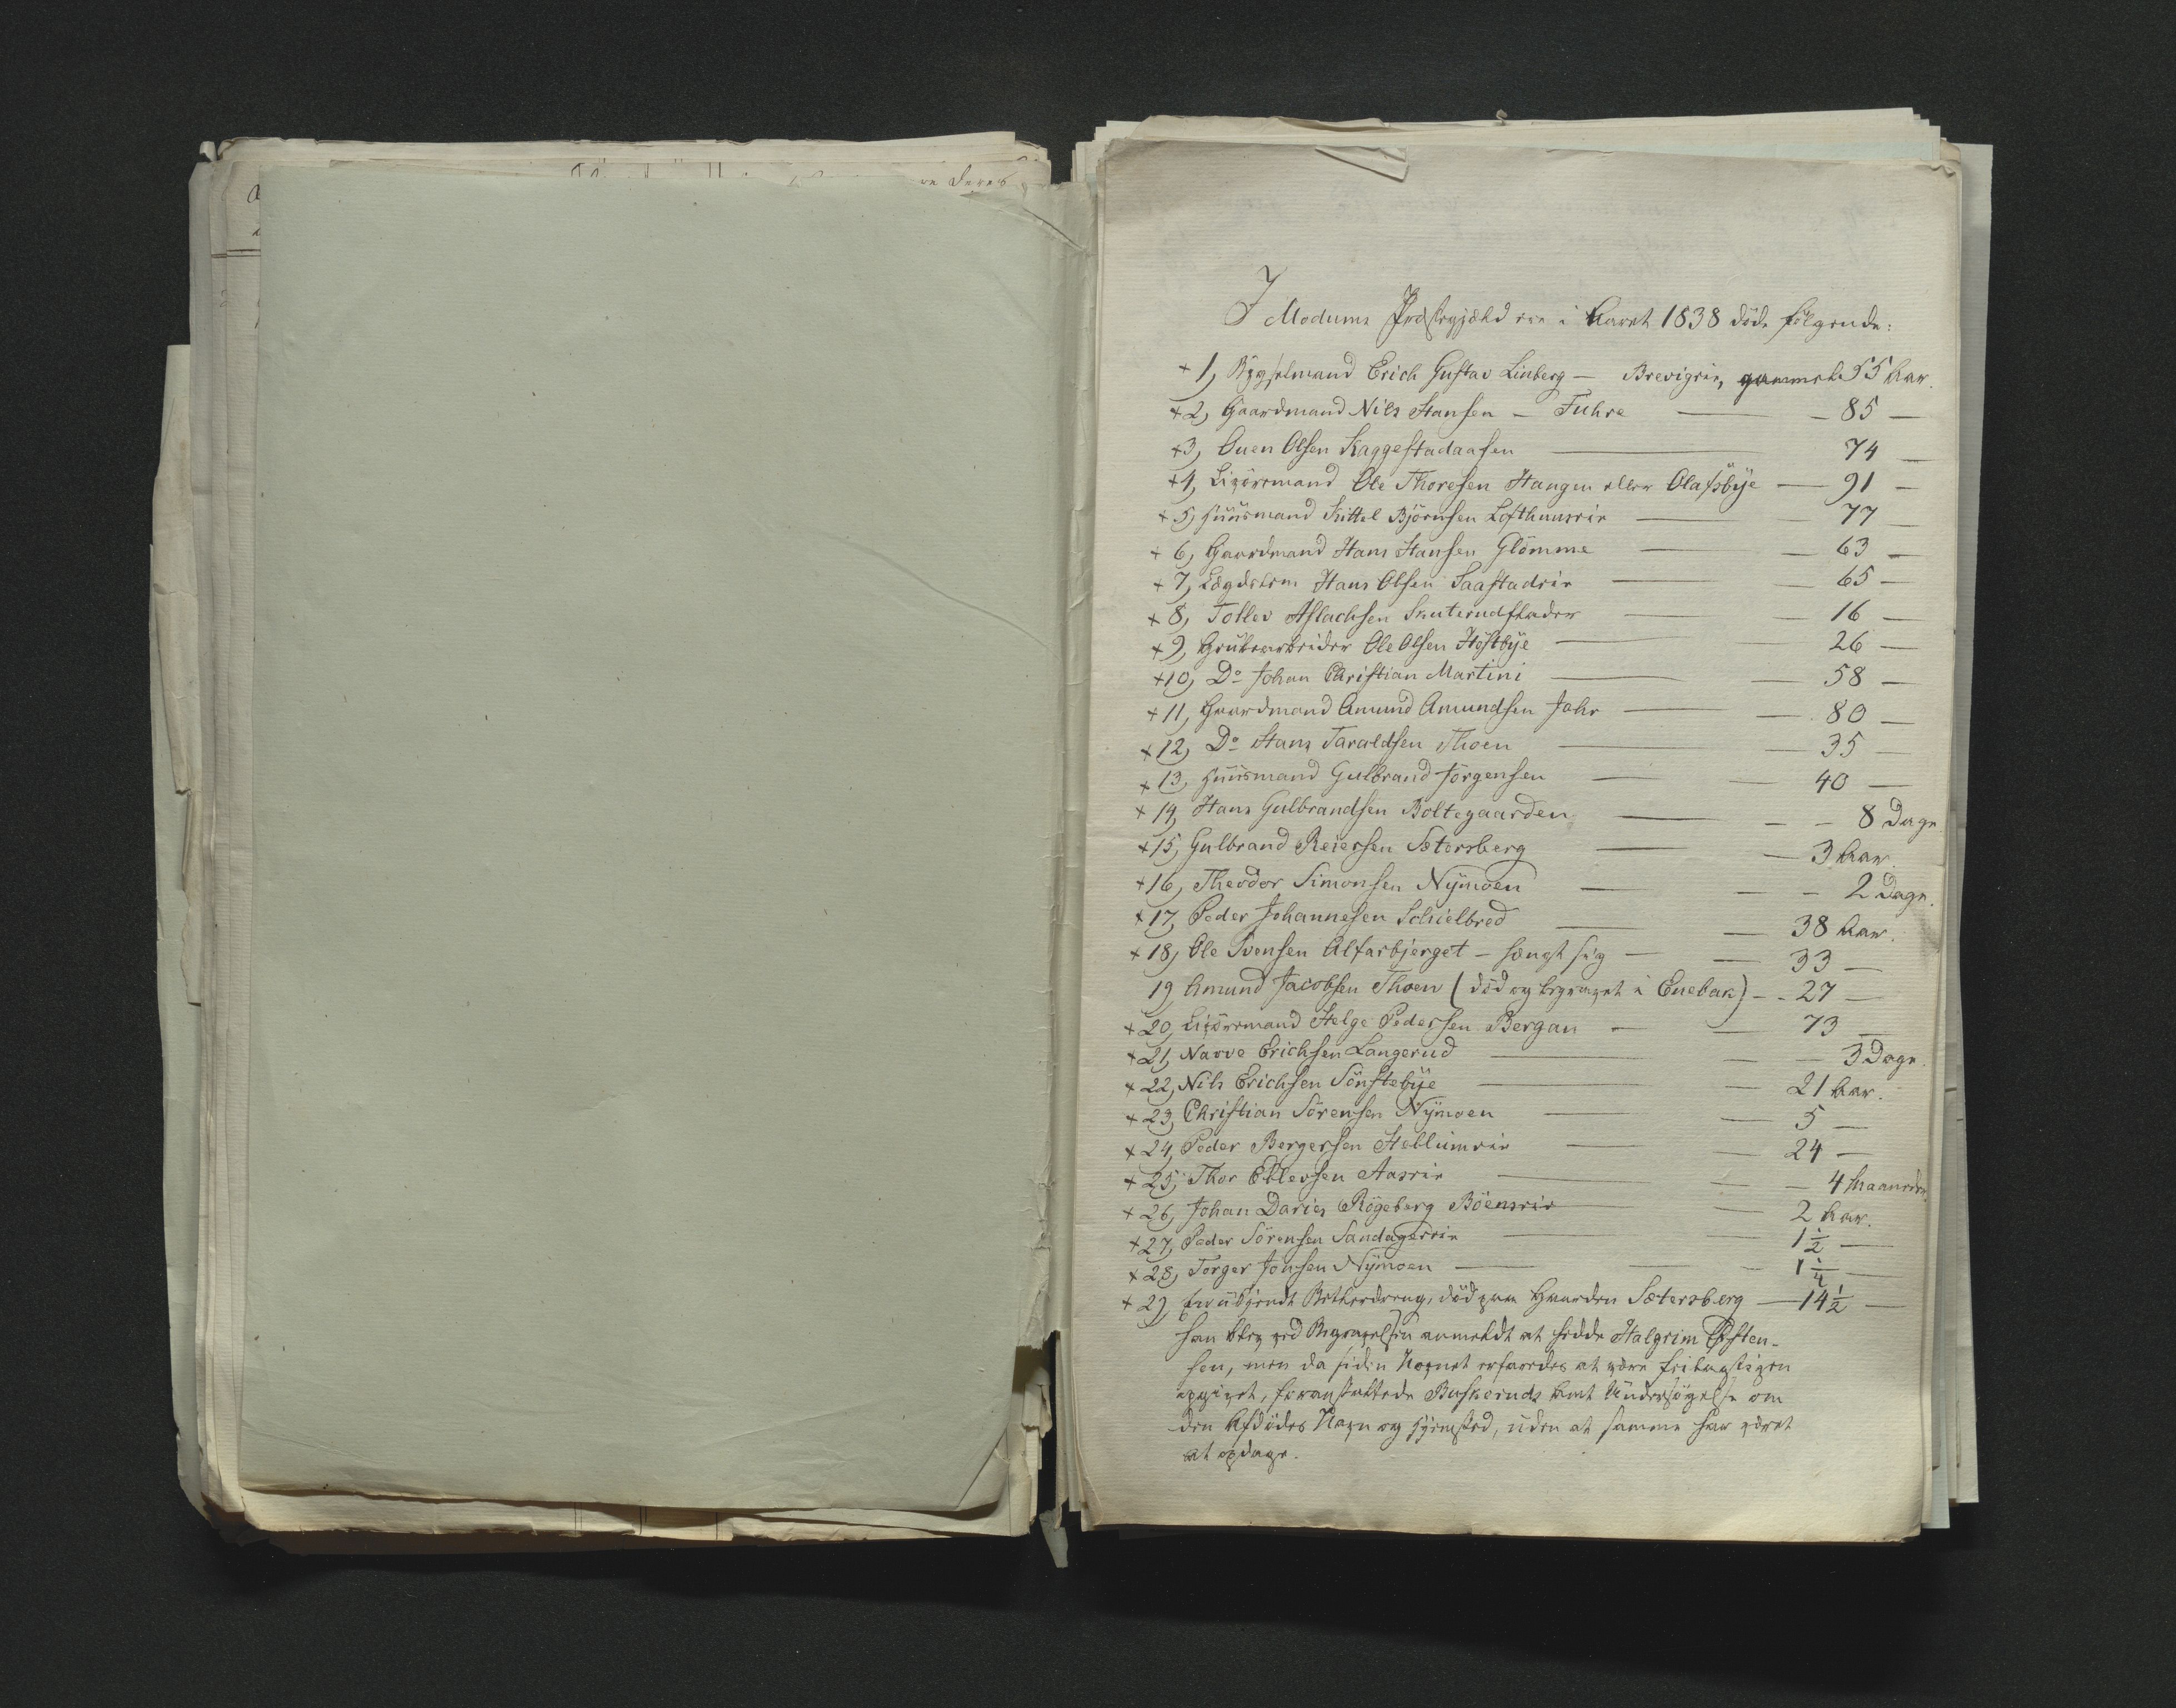 I Modums Præstegjæld ere i Aaret 1838 döde fölgende:
+ 1, Bygselmand Erich Gustav Linberg — Brevigeie, gammel 55 Aar.
+ 2, Gaardmand Nils Hansen — Fuhre — 85 —
+ 3, Ouen Olsen Kaggestadaasen — 74 —
+ 4, Livöremand Ole Thoresen Haugen eller Olafsbÿe — 91 —
+ 5, Huusmand Kittel Björnsen Lofthuuseie — 77 —
+ 6, Gaardmand Hans Hansen Glömme — 63 —
+ 7, Lægdslem Hans Olsen Saastadeie — 65 —
+ 8, Tollev Aslachsen Skuterudflader — 16 —
+ 9, Grubearbeider Ole Olsen Høstbÿe — 26 —
+ 10, Do Johan Christian Martini — 58 —
+ 11, Gaardmand Amund Amundsen Jahr — 80 —
+ 12, Do Hans Taraldsen Thoen — 35 —
+ 13, Huusmand Gulbrand Jörgensen — 40 —
+ 14, Hans Gulbrandsen Boltegaarden — 8 Dage
+ 15, Gulbrand Reiersen Sætersberg — 3 Aar.
+ 16, Theodor Simonsen Nÿmoen — 2 Dage.
+ 17, Peder Johannesen Schielbred — 38 Aar.
+ 18, Ole Svensen Alfarbjerget — hængt sig — 33 —
19, Amund Jacobsen Thoen (död og begravet i Enebak) — 27 —
+ 20, Livöremand Helge Pedersen Bergan — 73 —
+ 21, Narve Erichsen Langerud — 3 Dage.
+ 22, Nils Erichsen Sönstebÿe — 21 Aar.
+ 23, Christian Sörensen Nÿmoen — 5 —
+ 24, Peder Bergersen Hellumeie — 24 —
+ 25, Thor Ellevsen Aaseie — 4 Maaneder.
+ 26, Johan Daries Rögeberg Böenseie — 2 Aar.
+ 27, Peder Sörensen Sandagereie — 1 1/2 —
+ 28, Torger Jonsen Nÿmoen — 1 1/4 —
+ 29, En übkjendt Betlerdreng, död paa Gaarden Sætersberg — 14 1/2 —
han blev ved Begravelsen anmeldt at hedde Halgrim Østen-
sen, men da siden Navnet erfaredes at være feilagtigen
opgivet, foranstaltede Buskeruds Amt Undersögelse om
den Afdödes Navn og Hjemsted, uden at samme har været
at opdage.